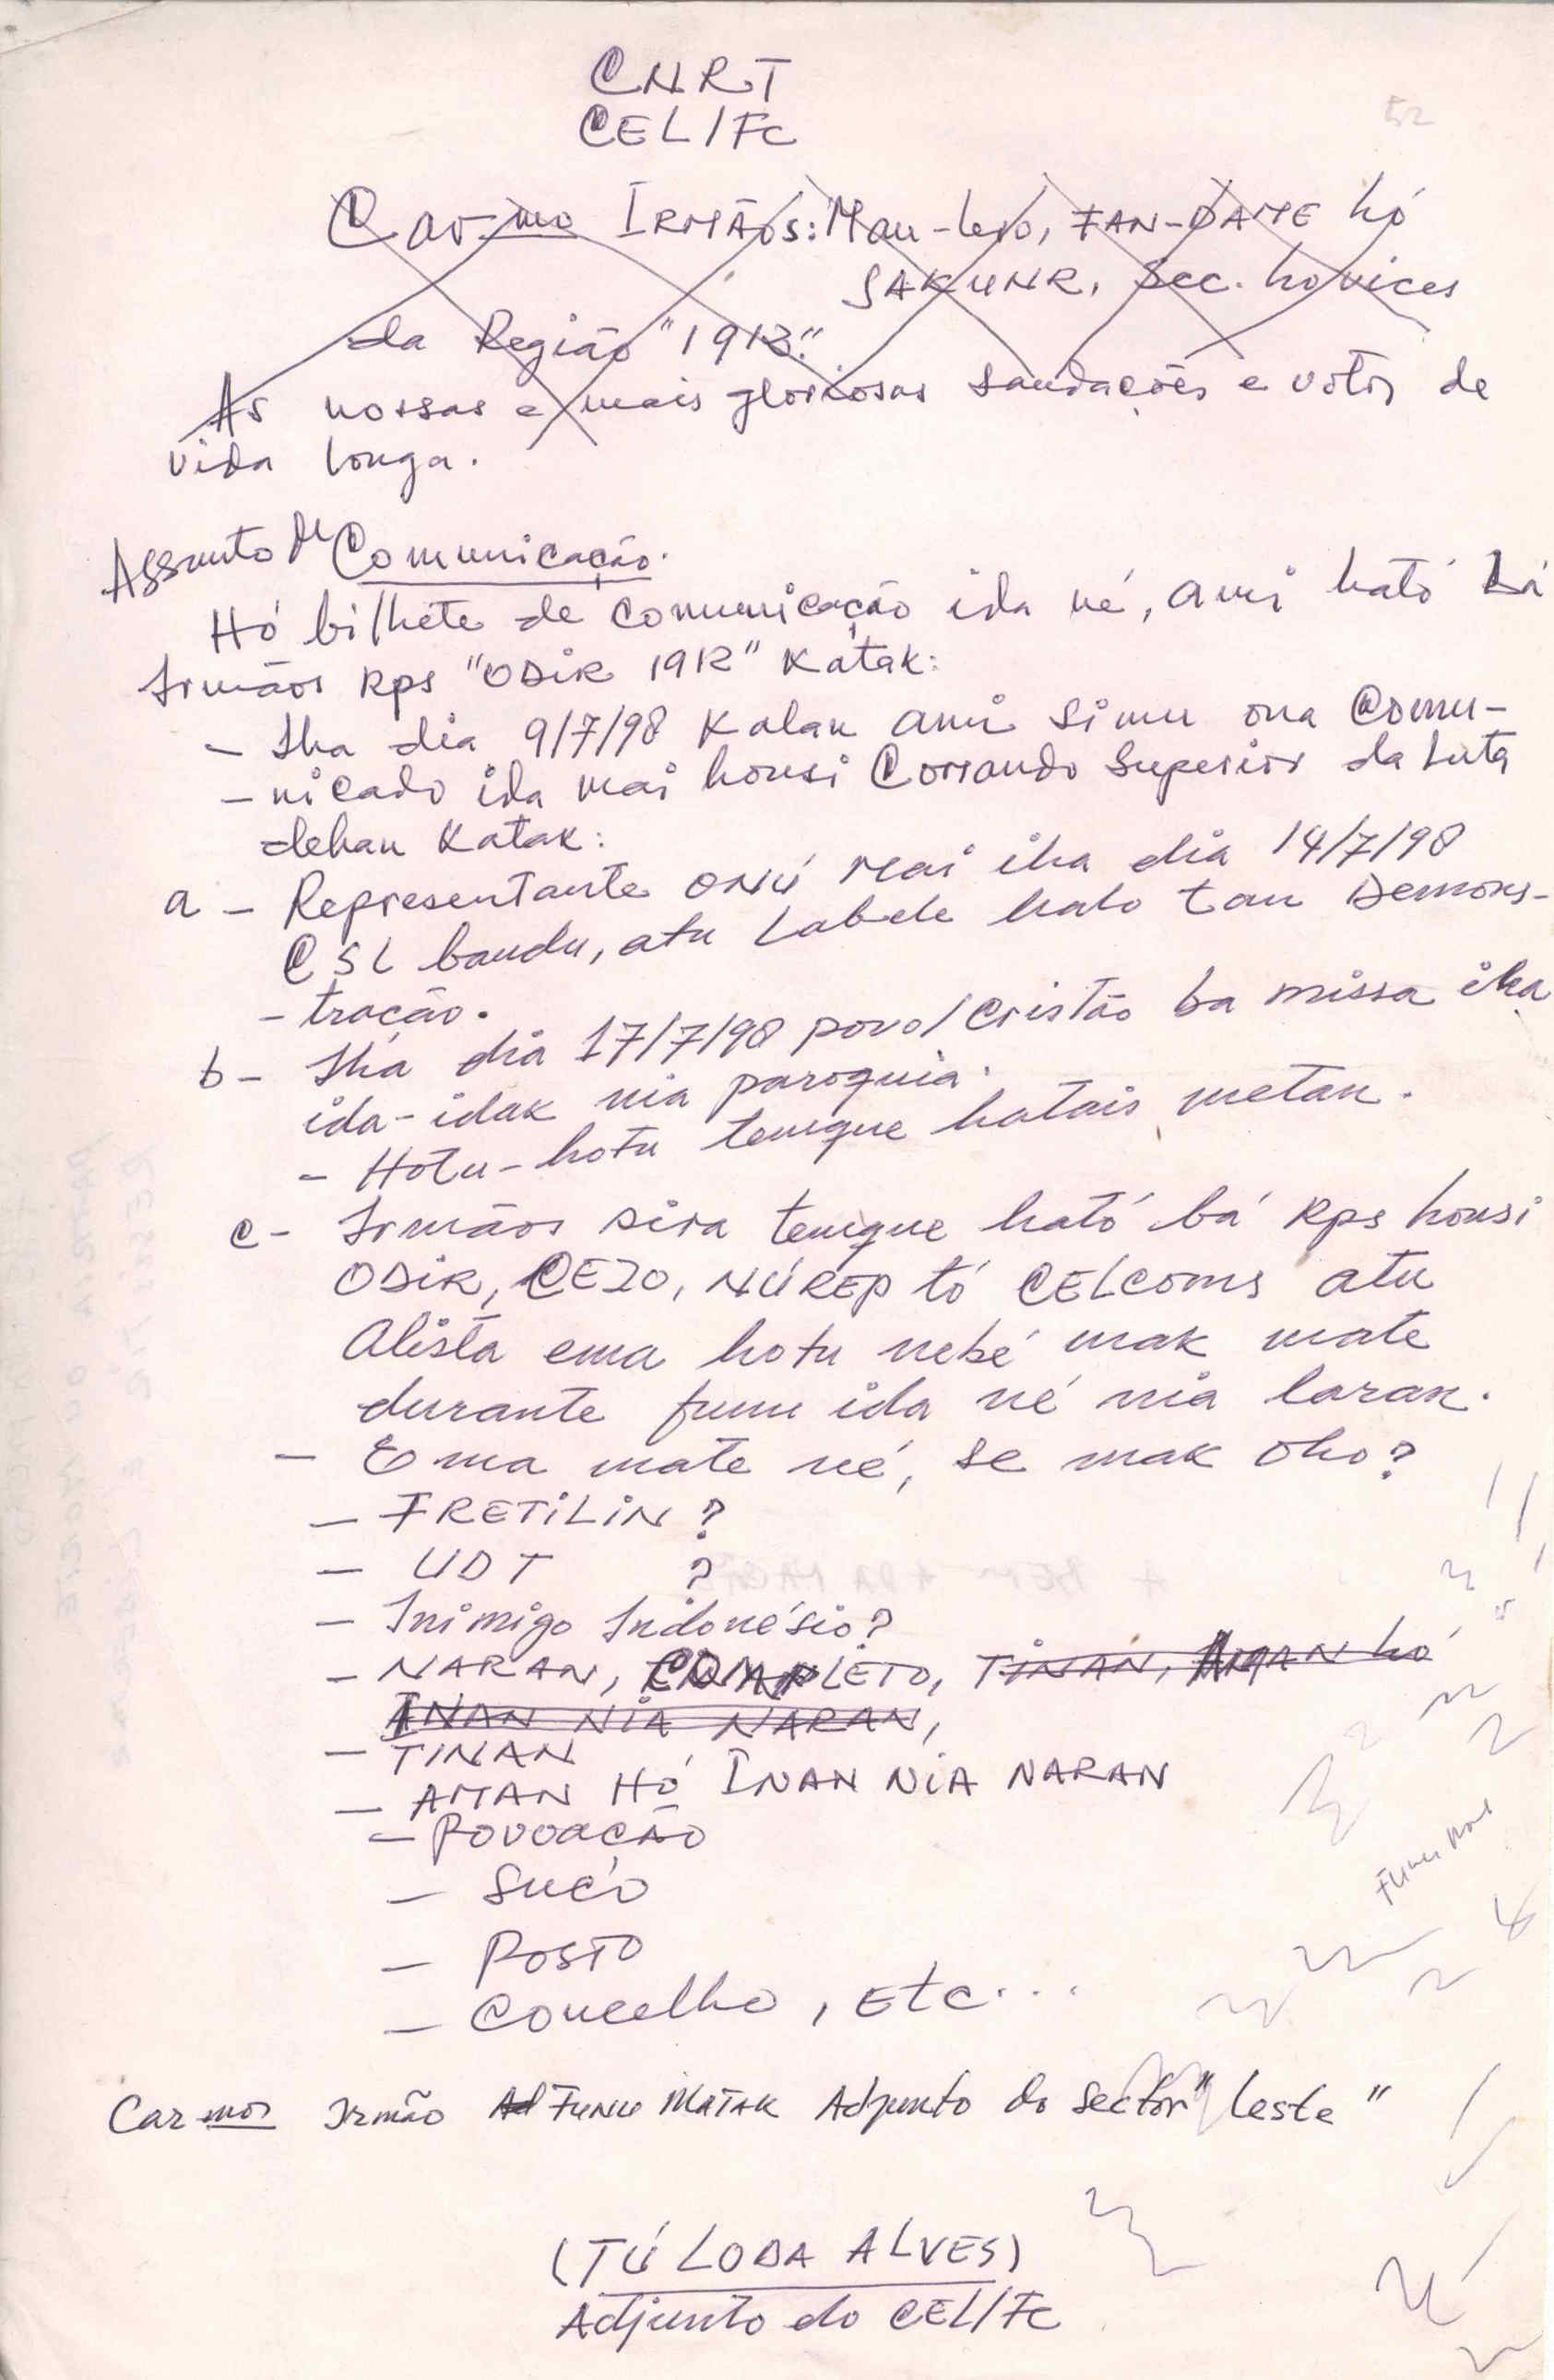 CNRT
CEL/FC
52
Carmo IRMÃOS: Mau-lero, FAN-DAME hó
SAKUNR, Sec. ho vices
da Região "1912".
As nossas e mais gloriosas saudações e votos de
vida longa.
Assunto Comunicação.
Hó bilhete de comunicação ida né, ami ható bá
Irmãos Rps "ODIR 1912" Katak:
- Iha dia 9/7/98 Kalan ami simu ona Comu-
- nicado ida mai housi Comando Superior da Luta
dehan Katak:
a - Representante ONÚ mai iha dia 14/7/98
CSL bandu, atu labele halo tan Demons-
- tração.
b - Iha dia 17/7/98 povo/Cristão ba missa iha
ida-idak nia paroquia.
- Hotu-hotu temque hatais metan.
c - Irmãos sira temque ható bá Rps housi
ODIR, CEZO, NÚREP tó CELCOMS atu
Alista ema hotu nebé mak mate
durante funu ida né nia laran.
- Ema mate né, se mak oho?
- FRETILIN ?
- UDT ?
- Inimigo Indonésio?
- NARAN, COMPLETO, TINAN, AMAN hó
INAN NIA NARAN,
- TINAN
- AMAN HÓ INAN NIA NARAN
- POVOAÇÃO
- SUCO
- POSTO
- Concelho, Etc...
Funu
Carmos Irmão Ad FUNU MATAK Adjunto do Sector "Leste"
(TÚ LODA ALVES)
Adjunto do CEL/FC